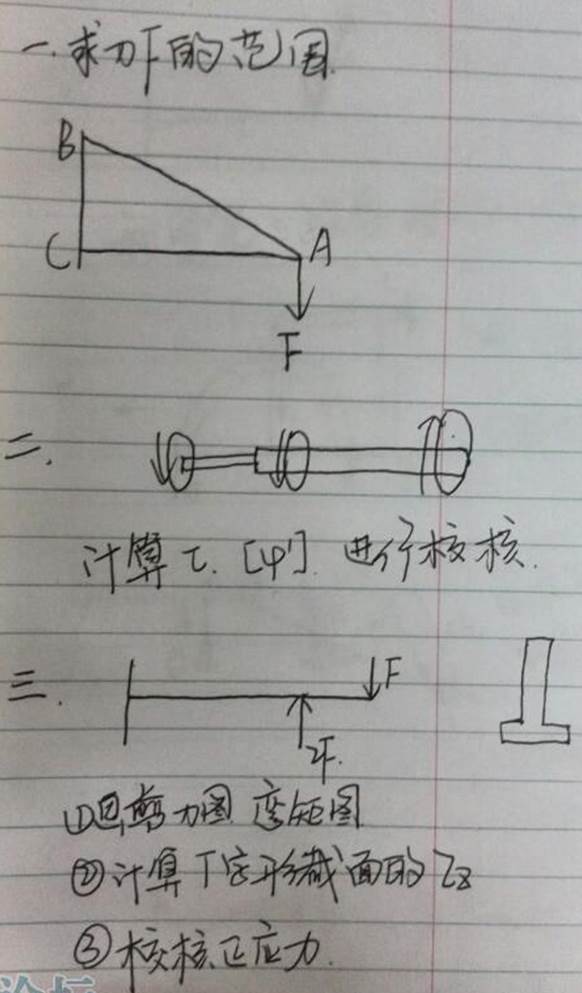 一.求力F的范围.
B
C
A
F
二.
计算τ.[φ'].进行校核.
三.
F
2F.
①画剪力图 弯矩图
②计算T字形截面的Iz
③校核正应力.
论坛